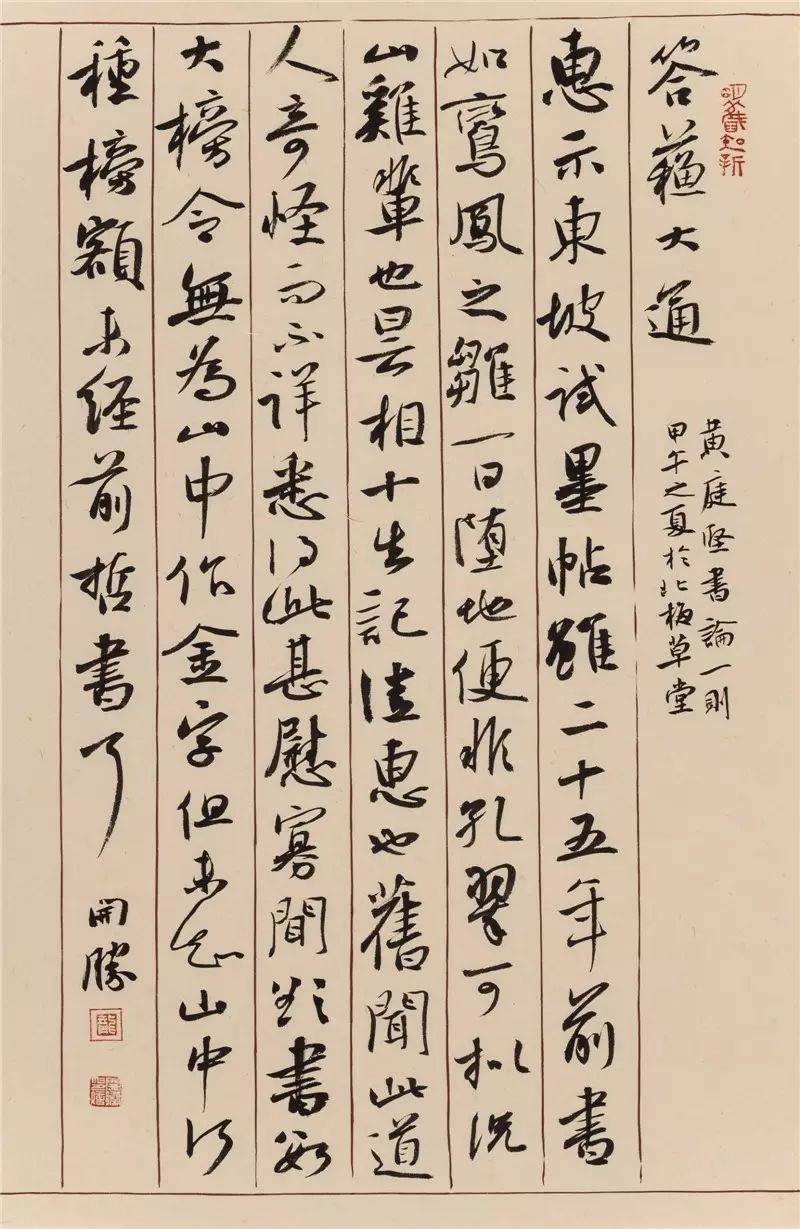 答蘇大通
黄庭堅書論一則
甲午之夏於北板草堂
惠示東坡試墨帖雖二十五年前書
如鸞鳳之雛一日墮地便非孔翠可擬況
山雞輩也曇相十生記佳惠也舊聞此道
人奇怪而不詳悉得此甚慰寡聞欲書數
大榜令無為山中作金字但未知山中何
種榜額未經前哲書了
開勝